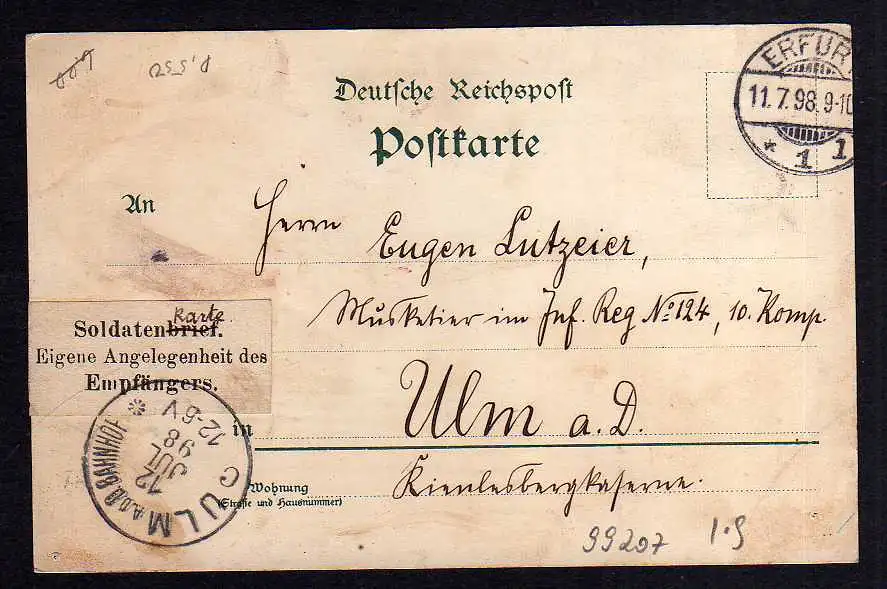 Deutsche Reichspost
Postkarte
ERFUR
11.7.98.9-10
* 1 1
An
Herrn
Eugen Lutzeier,
Musketier im Inf. Reg No 124, 10. Komp.
karte
Soldatenbrief.
Eigene Angelegenheit des
Empfängers.
in
Ulm a. D.
Wohnung
(Straße und Hausnummer)
Kienlesbergkaserne.
ULM A.D.D. BAHNHOF
12
JUL
98
12-6V
C
99207
1.5